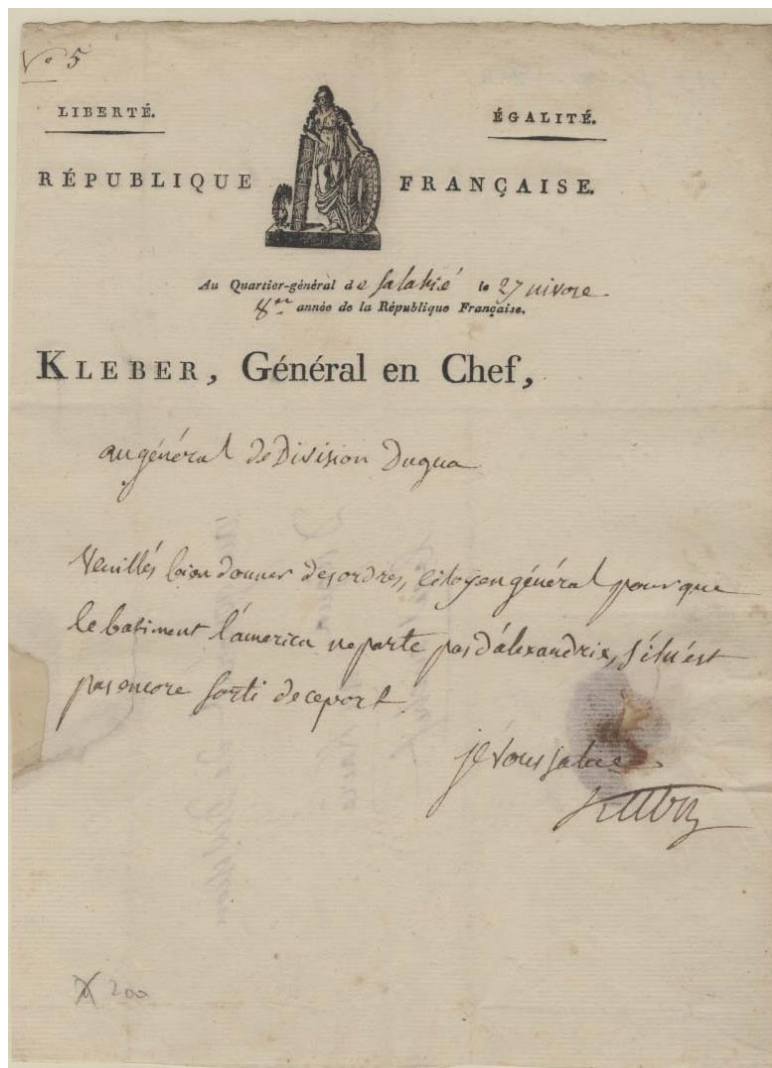 N.° 5
LIBERTÉ. ÉGALITÉ.
RÉPUBLIQUE FRANÇAISE.
Au Quartier-général de Salahié le 27 nivose
8.me année de la République Française.
KLEBER, Général en Chef,
au général de Division Dugua
Veuillés bien donner des ordres, citoyen général pour que
le batiment l'america ne parte pas d'alexandrie, s'il n'est
pas encore sorti de ce port.
je vous salue
Kleber
200